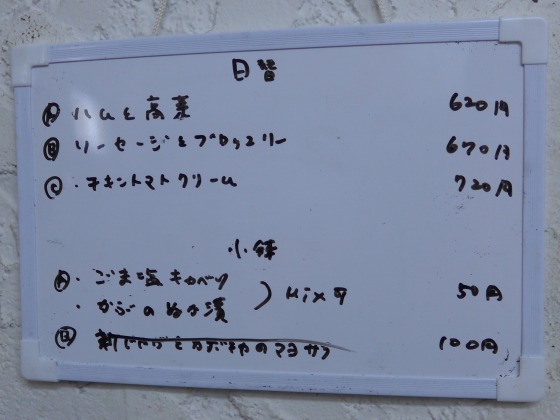 日替
Ⓐ ハムと高菜 620円
Ⓑ ソーセージとブロッコリー 670円
Ⓒ ・チキントマトクリーム 720円
小鉢
Ⓐ ・ごま塩キャベツ
・かぶのぬか漬 ) Mixり 50円
Ⓑ 新じゃがとかぼちゃのマヨサラ 100円